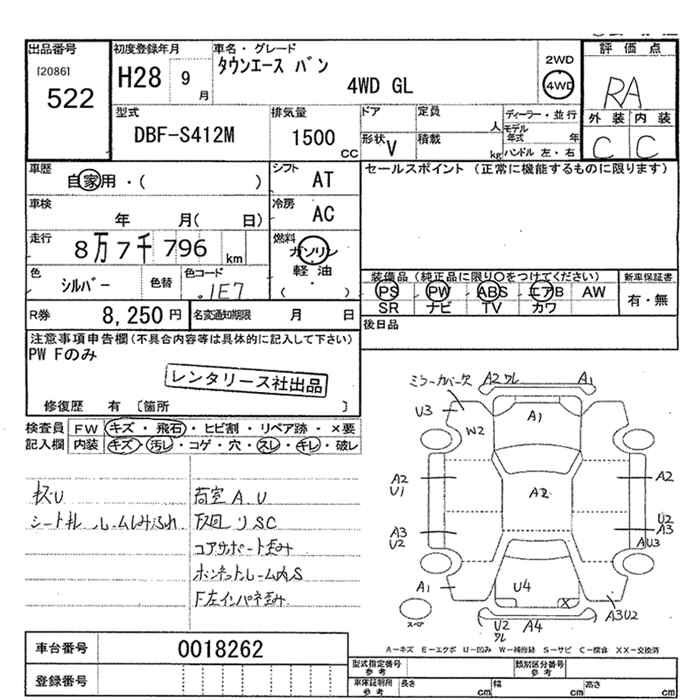 出品番号 初度登録年月 車名・グレード 2WD 評価点
[2086] H28 9月 タウンエース バン 4WD
522 4WD GL RA
型式 排気量 ドア 定員 人 ディーラー・並行 外装 内装
DBF-S412M 1500 CC 形状 V 積載 kg モデル年式 年 C C
ハンドル 左・右
車歴 自家用・( ) シフト AT セールスポイント (正常に機能するものに限ります)
車検 年 月( 日) 冷房 AC
走行 8万7千796 km 燃料 ガソリン
軽油
( )
色 シルバー 色替 色コード 1E7 装備品 (純正品に限り○をつけてください) 新車保証書
PS PW ABS エアB AW 有・無
SR ナビ TV カワ
R券 8,250円 名変通知期限 月 日 後日品
注意事項申告欄(不具合内容等は具体的に記入して下さい)
PW Fのみ
レンタリース社出品
修復歴 有 〔箇所 〕
検査員 FW キズ・飛石・ヒビ割・リペア跡・×要
記入欄 内装 キズ・汚し・コゲ・穴・スレ・キレ・破レ
荷室 A.U
シート ルーム
コアサポート歪み
F左インパネ歪み
ミラーカバー欠 A2 ワレ A1
U3 W2 A1
A2 U1 A2 A2
A3 U2 U2 A3
AU3
A1 U4 X A3U2
スペア U2 ワレ A4
A-キズ E-エクボ U-凹み W-補修跡 S-サビ C-腐食 XX-交換済
車台番号 0018262
登録番号
型式指定番号 参考 類別区分番号 参考
車庫証明用 参考 長さ cm 幅 cm 高さ cm